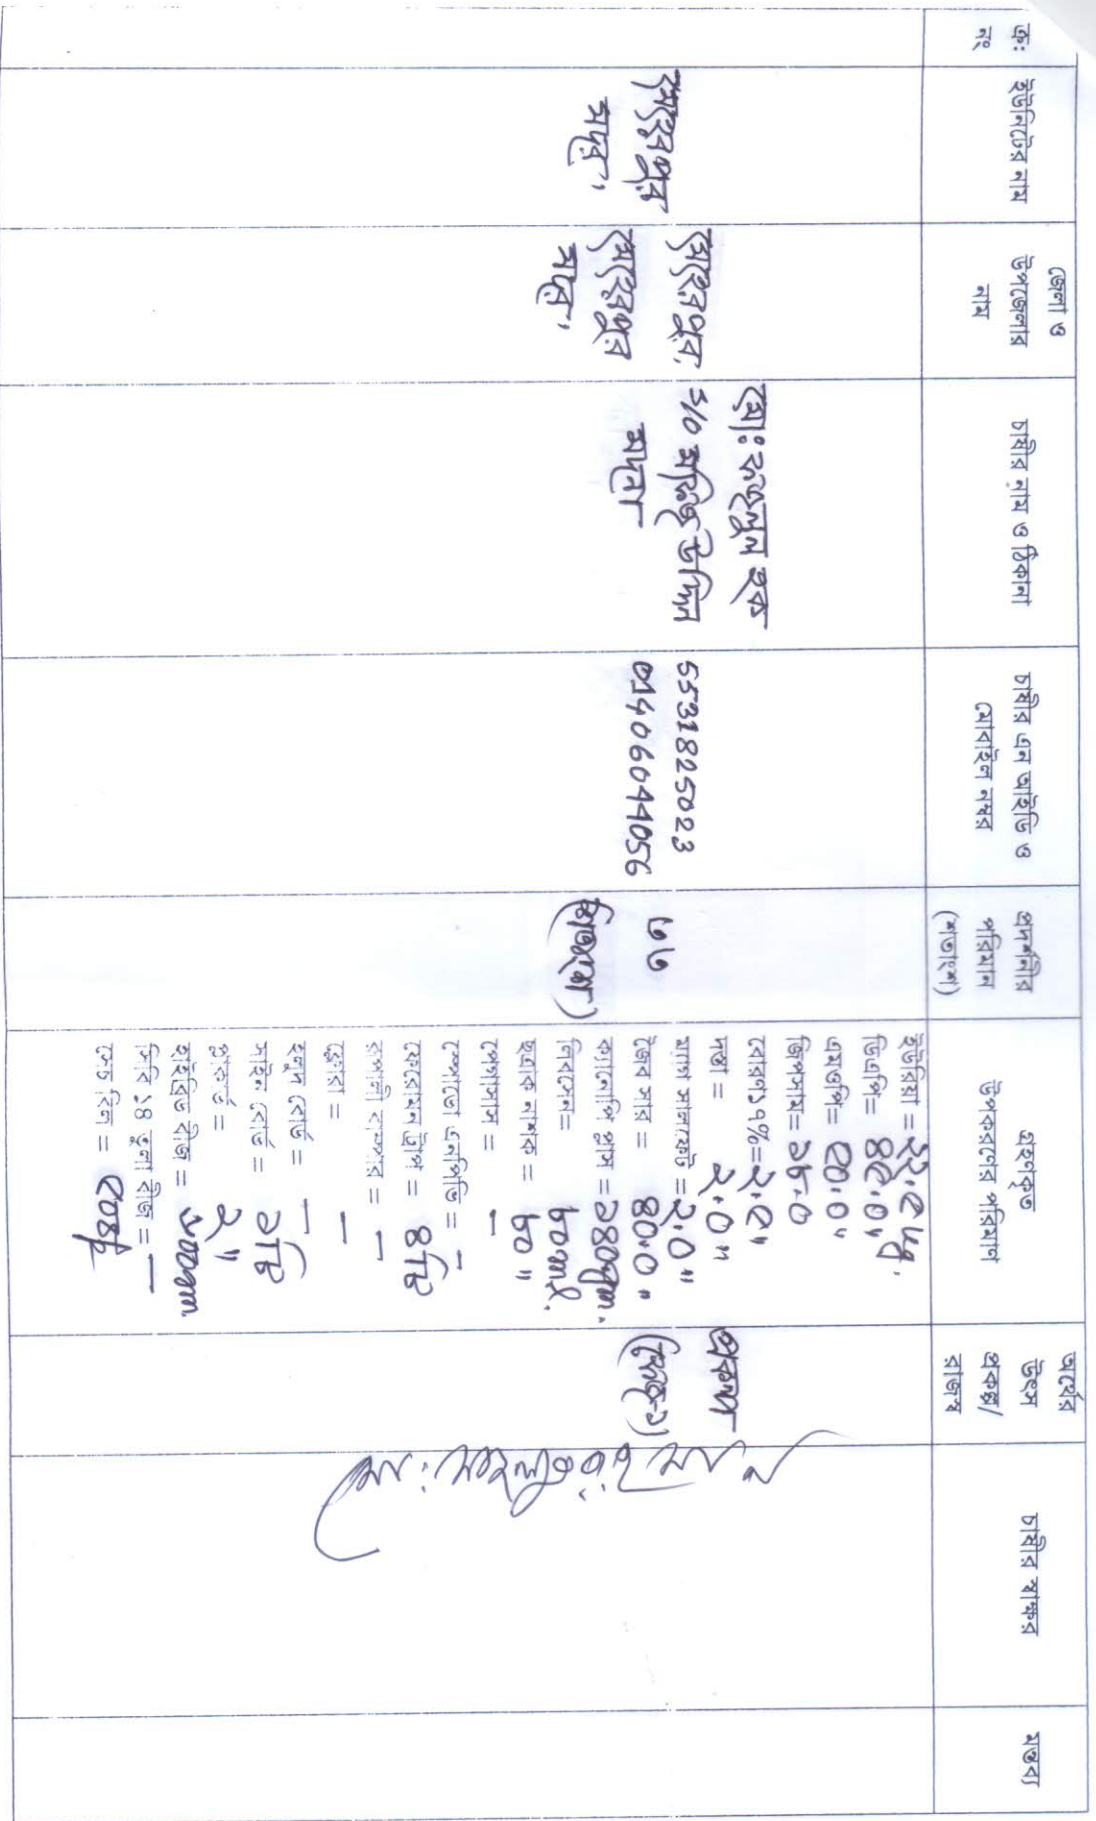 ক্র: নং
ইউনিটের নাম
জেলা ও উপজেলার নাম
চাষীর নাম ও ঠিকানা
চাষীর এন আইডি ও মোবাইল নম্বর
প্রদর্শনীর পরিমান (শতাংশ)
গ্রহণকৃত উপকরণের পরিমাণ
অর্থের উৎস প্রকল্প/রাজস্ব
চাষীর স্বাক্ষর
মন্তব্য
মেহেরপুর
সদর,
মেহেরপুর,
মেহেরপুর
সদর,
মো: রুহুল হক
S/O মহিউদ্দিন
মদনা
5531825023
৩৩
ইউরিয়া = ২২.৫ kg.
টিএসপি= ৪৫.০"
এমওপি= ৫০.০"
জিপসাম= ১৮.০
বোরণ১৭%=২.৫"
দস্তা = ২.০"
ম্যাগ সালফেট = ২.০"
জৈব সার = ৪০.০ "
ক্যানোপি প্লাস = ১৪০gm.
নিবসেন= ৮০ml.
ছত্রাক নাশক = ৮০ "
পেগাসাস = –
স্পোডো এনপিভি = –
ফেরোমন ট্রাপ = ৪টি
রুপালী বাম্পার = –
ফ্লোরা = –
হলুদ বোর্ড = –
সাইন বোর্ড = ১টি
প্লাকার্ড = ২"
হাইব্রিড বীজ = ৬০০gm
সিবি ১৪ তুলা বীজ = –
প্রকল্প